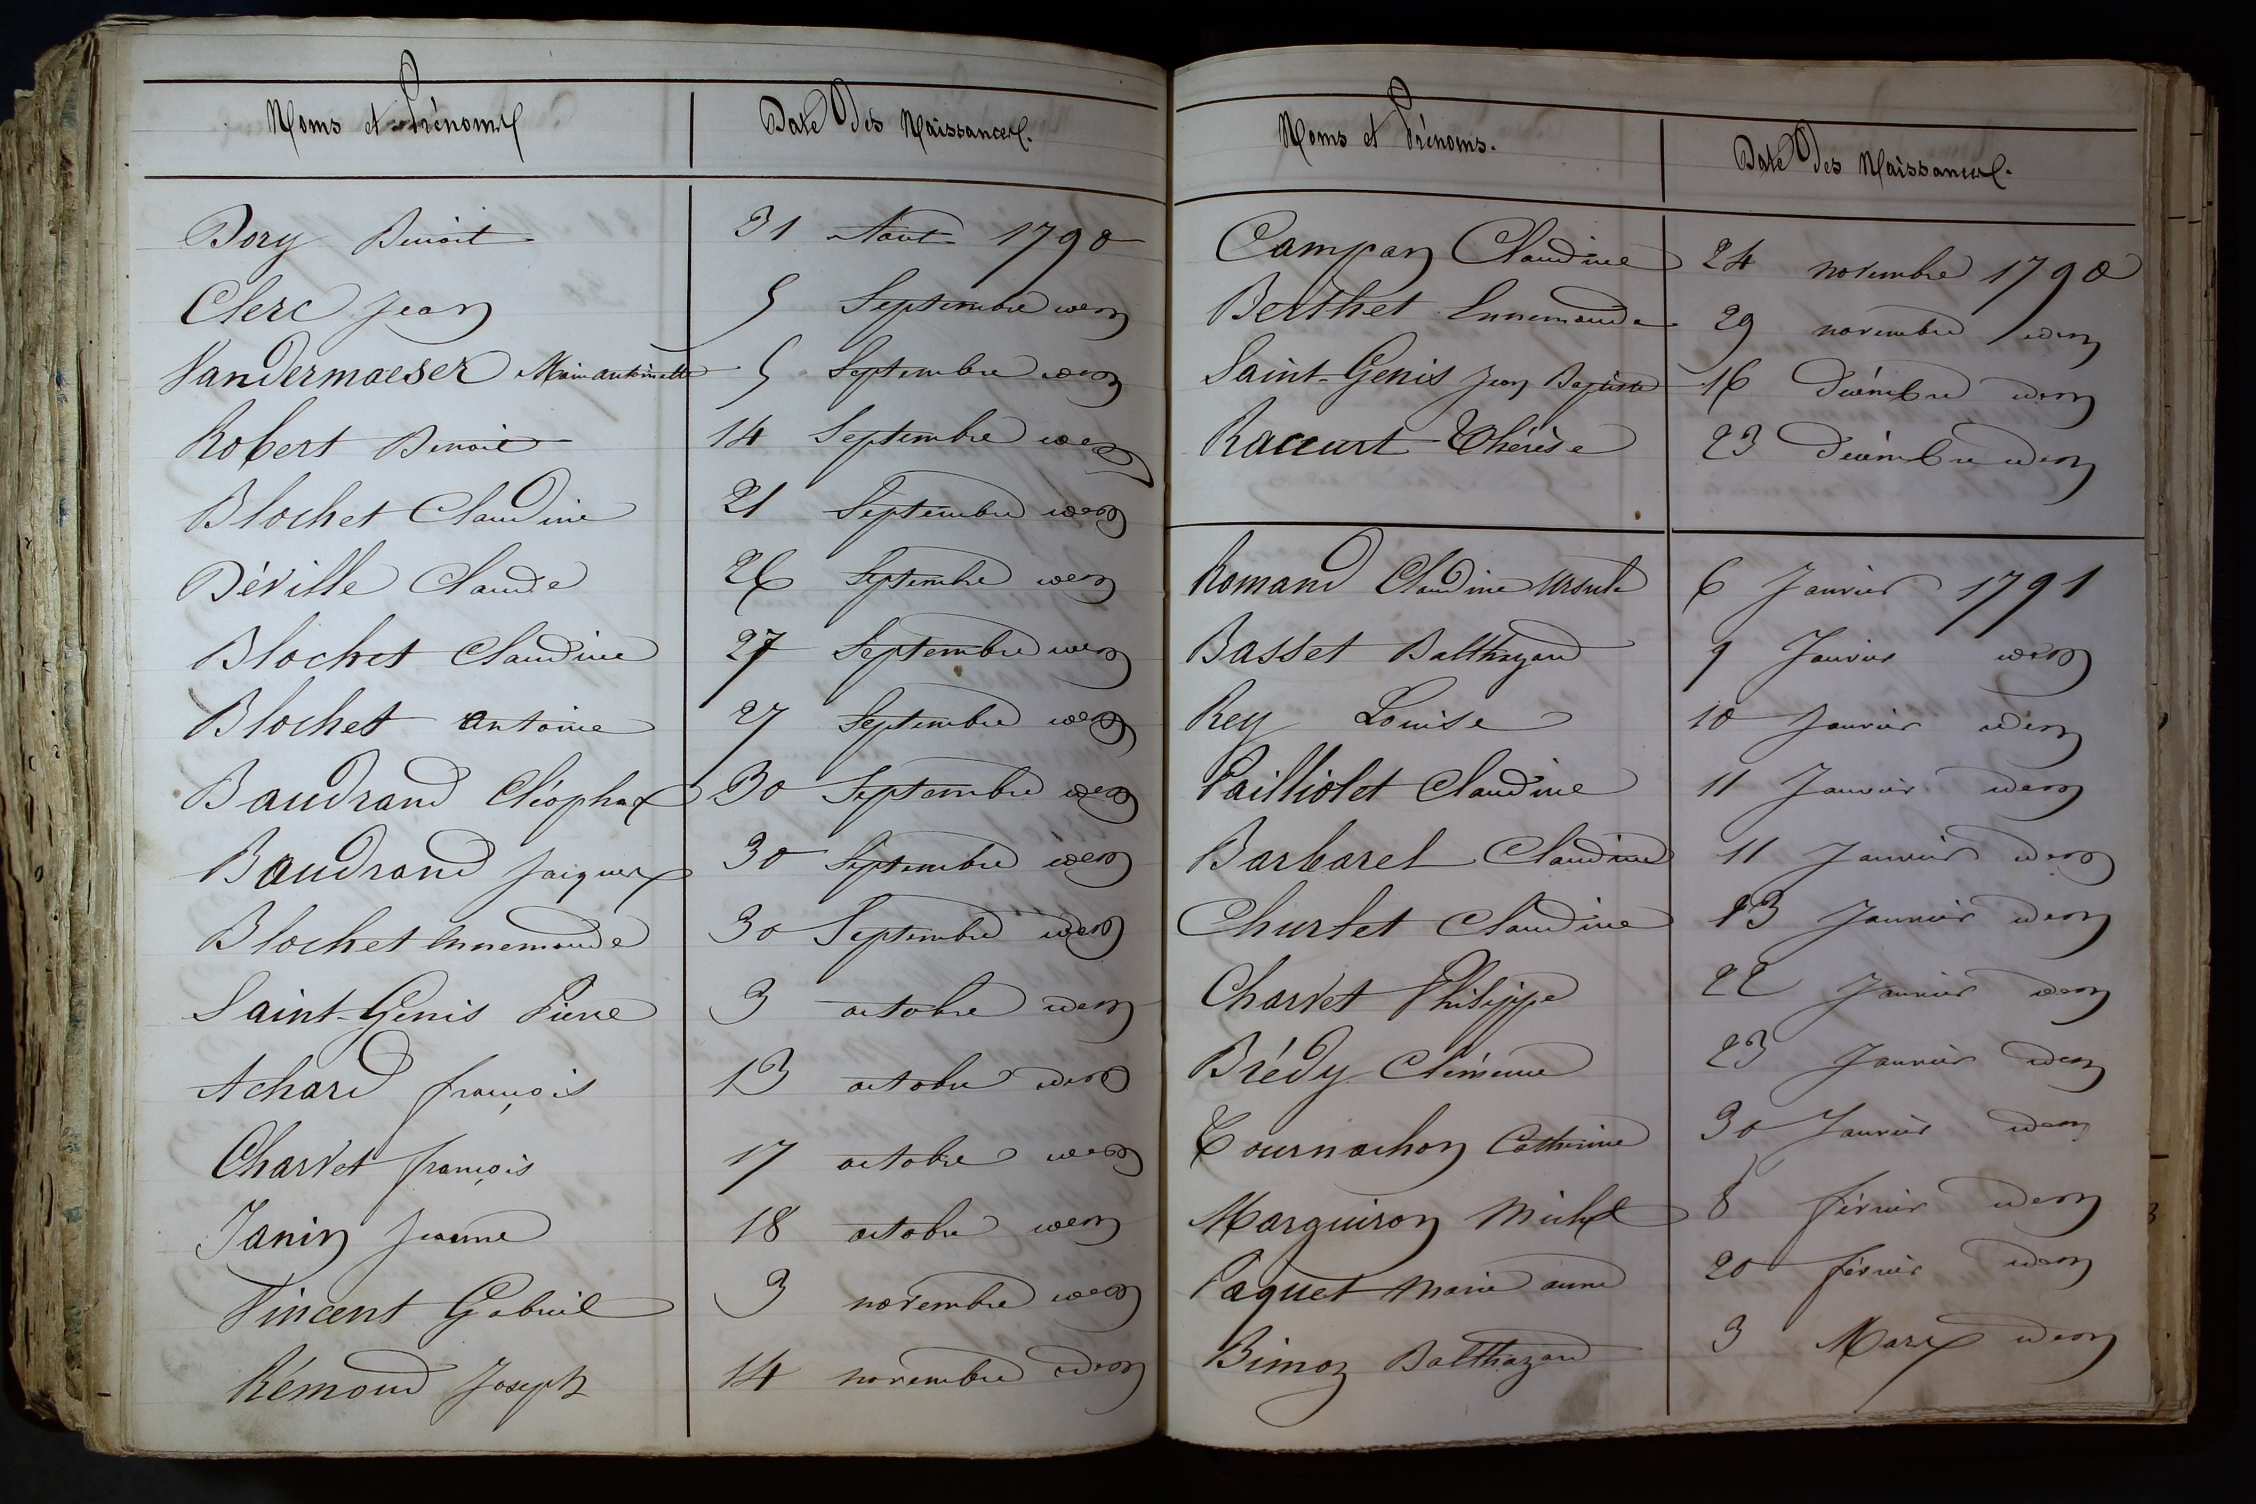 Noms et Prénoms
Date des Naissances.
Dory Benoit
31 Aout 1790
Clerc Jean
5 Septembre idem
Vandermaeser Marie antoinette
5 Septembre idem
Robert Benoit
14 Septembre idem
Blochet Claudine
21 Septembre idem
Déville Claude
26 Septembre idem
Blochet Claudine
27 Septembre idem
Blochet Antoine
27 Septembre idem
Baudrand Cléophas
30 Septembre idem
Baudrand Jacques
30 Septembre idem
Blochet Ennemonde
30 Septembre idem
Saint-Genis Pierre
3 octobre idem
Achard françois
13 octobre idem
Charvet françois
17 octobre idem
Janin Jeanne
18 octobre idem
Vincent Gabriel
3 novembre idem
Rémond Joseph
14 novembre idem
Noms et Prénoms.
Date des Naissances.
Campan Claudine
24 novembre 1790
Berthet Ennemonde
29 novembre idem
Saint-Genis Jean Baptiste
16 Décembre idem
Raccurt Thérèse
23 Décembre idem
Romand Claudine Ursule
6 Janvier 1791
Basset Balthazard
9 Janvier idem
Rey Louise
10 Janvier idem
Pailliolet Claudine
11 Janvier idem
Barbarel Claudine
11 Janvier idem
Churlet Claudine
13 Janvier idem
Charvet Philippe
22 Janvier idem
Brédy Clémence
23 Janvier idem
Tournachon Catherine
30 Janvier idem
Marguiron Michel
8 février idem
Paquet Marie anne
20 février idem
Bimoz Balthazard
3 Mars idem